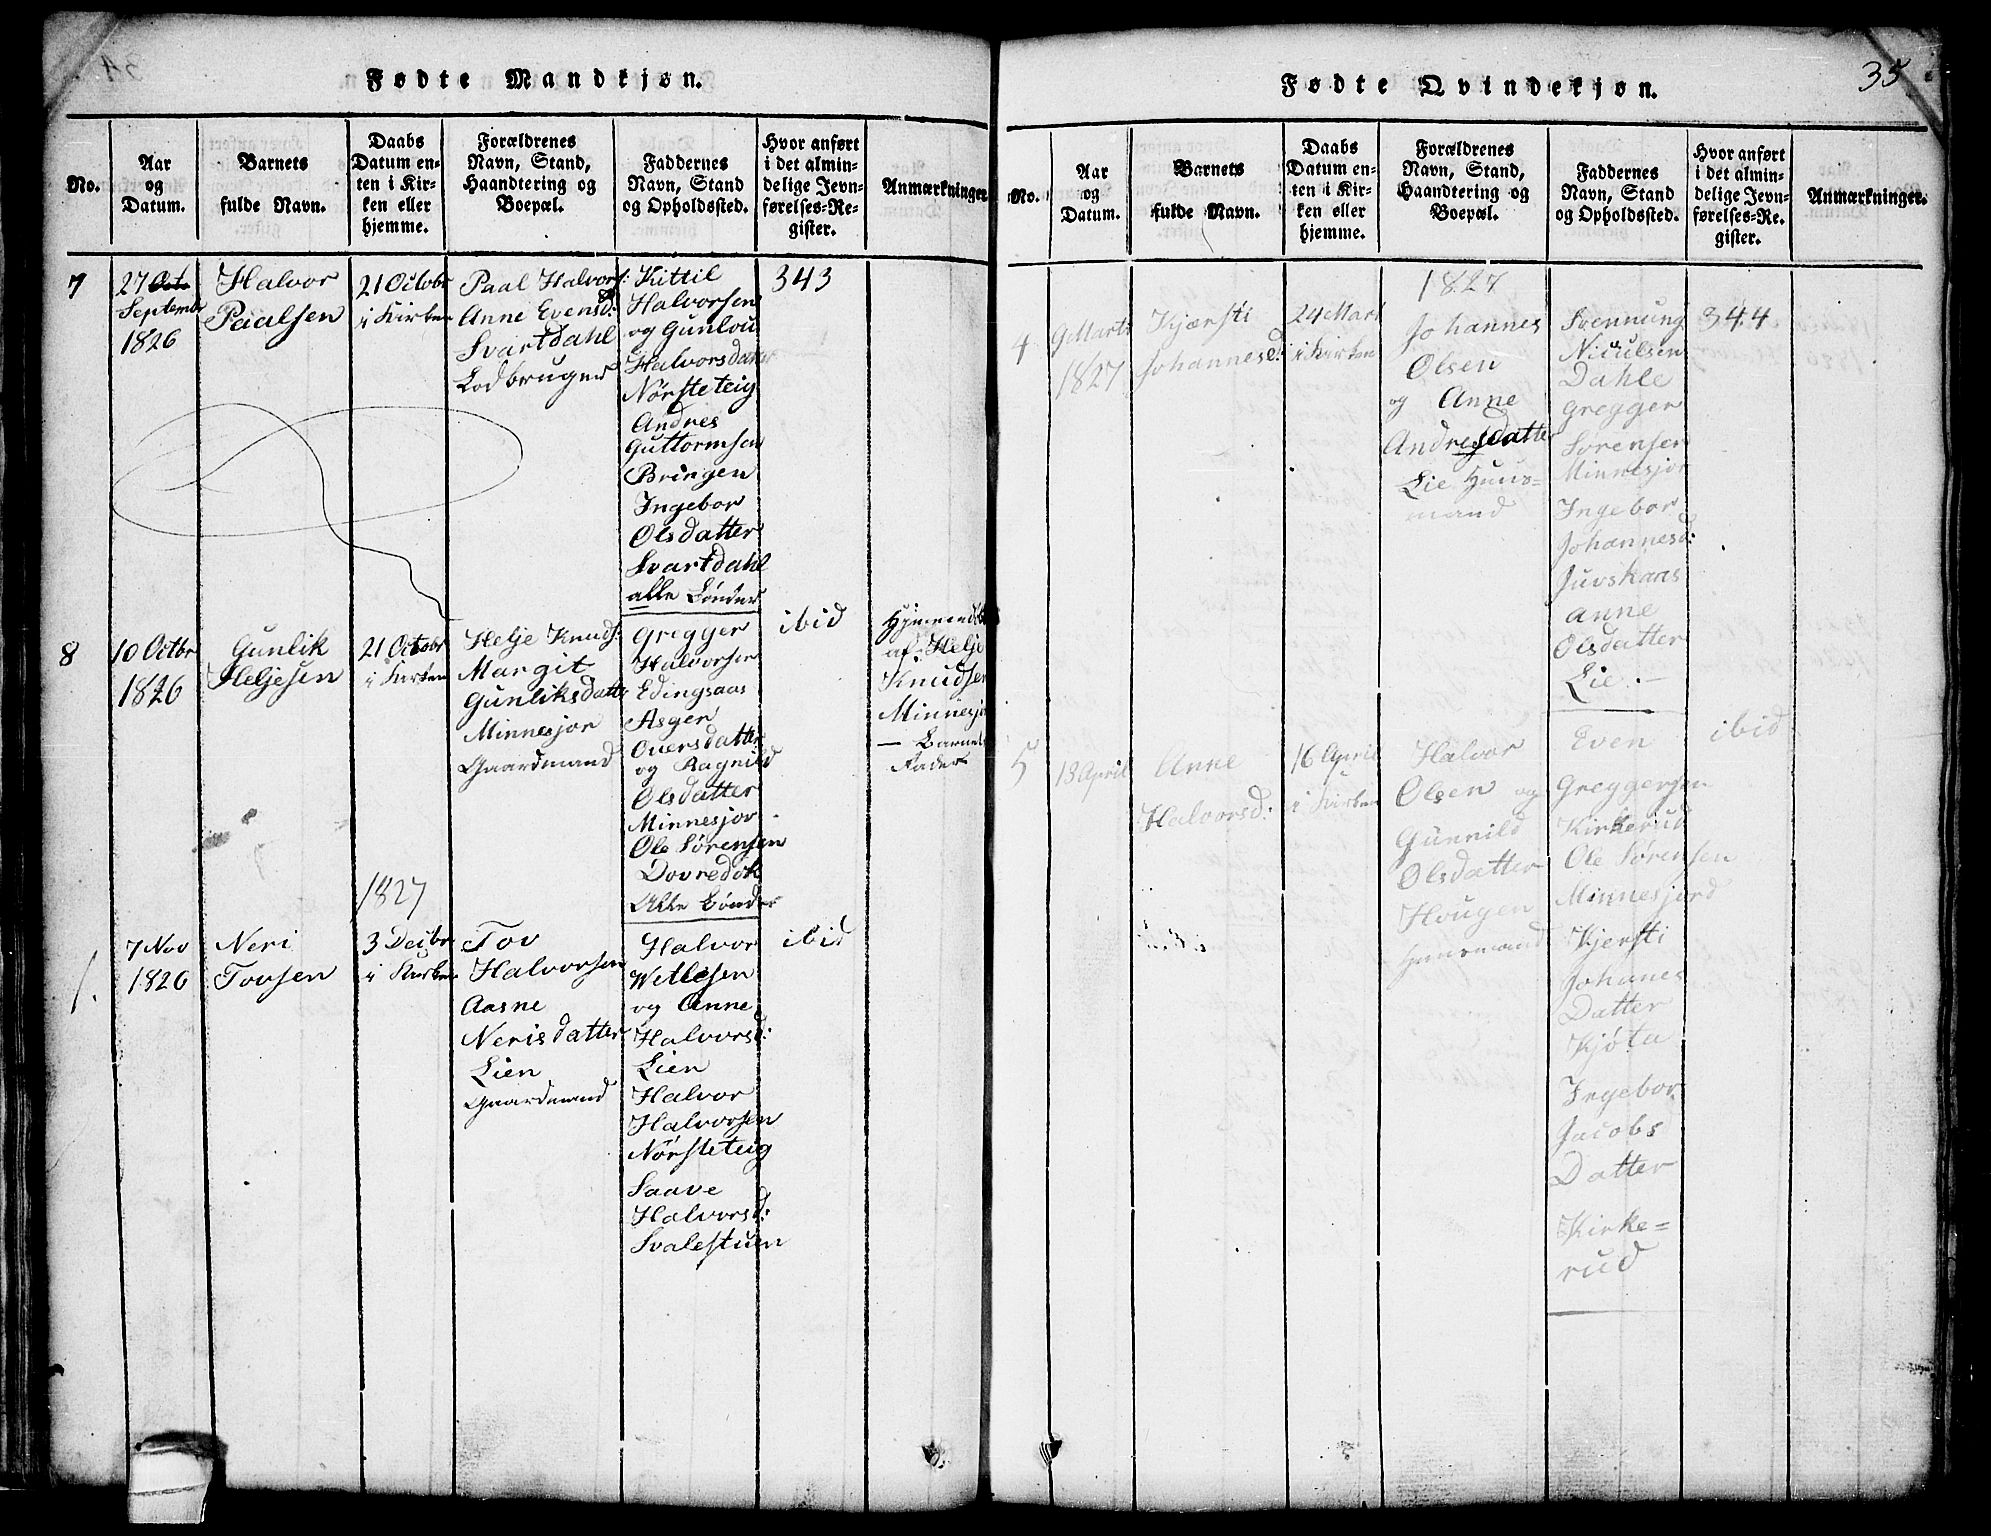 Fødte Mandkjøn.
No.
Aar
og
Datum.
Barnets
fulde Navn.
Daabs
Datum en-
ten i Kir-
ken eller
hjemme.
Forældrenes
Navn, Stand,
Haandtering og
Boepæl.
Faddernes
Navn, Stand
og Opholdssted.
Hvor anført
i det almin-
delige Jevn-
førelses-Re-
gister.
Anmærkninger.
7
27 Oct.
Septembr
1826
Halvor
Paalsen
21 Octobr
i Kirken
Paal Halvors:
Anne Evensd:
Svartdahl
Lodbruger
Kittil
Halvorsen
og Gunlou
Halvorsdatter
Nørsteteig
Andres
Guttormsen
Bringen
Ingebor
Olsdatter
Svartdahl
alle Bønder
343
8
10 Octbr
1826
Gunlik
Heljesen
21 Octobr
i Kirken
Helje Knuds:
Margit
Gunliksdatter
Minnesjor
Gaardmand
Gregger
Halvorsen
Edingsaas
Asger
Oversdatter
og Ragnild
Olsdatter
Minnesjor
Ole Sørensen
Dovredok
Alle Bønder
ibid
af Helje
Knudsen
Minnesjor
— Barnets
Fader
1827
1.
7 Nov
1826
Neri
Tovsen
3 Decbr
i Kirken
Tov
Halvorsen
Aasne
Nerisdatter
Lien
Gaardmand
Halvor
Wetlesen
og Anne
Halvorsd:
Lien
Halvor
Halvorsen
Nørsteteig
Saave
Halvorsd:
Svalestuen
ibid
35
Fødte Qvindekjøn.
No.
Aar
og
Datum.
Barnets
fulde Navn.
Daabs
Datum en-
ten i Kir-
ken eller
hjemme.
Forældrenes
Navn, Stand,
Haandtering og
Boepæl.
Faddernes
Navn, Stand
og Opholdssted.
Hvor anført
i det almin-
delige Jevn-
førelses-Re-
gister.
Anmærkninger.
1827
4
9 Marts
1827
Kjærsti
Johannesd:
24 Mart
i Kirken
Johannes
Olsen
og Anne
Andresdatter
Lie Huus=
mand
Svennung
Niculsen
Dahle
Gregger
Sørensen
Minnesjor
Ingebor
Johannesd:
Juvskaas
Anne
Olsdatter
Lie. —
344
5
13 April
Anne
Halvorsd:
16 April
i Kirken
Halvor
Olsen og
Gunnild
Olsdatter
Hougen
Huusmand
Even
Greggersen
Kirkerud
Ole Sørensen
Minnesjord
Kjersti
Johanes
Datter
Kjøta
Ingebor
Jacobs
Datter
Kirke=
rud
ibid